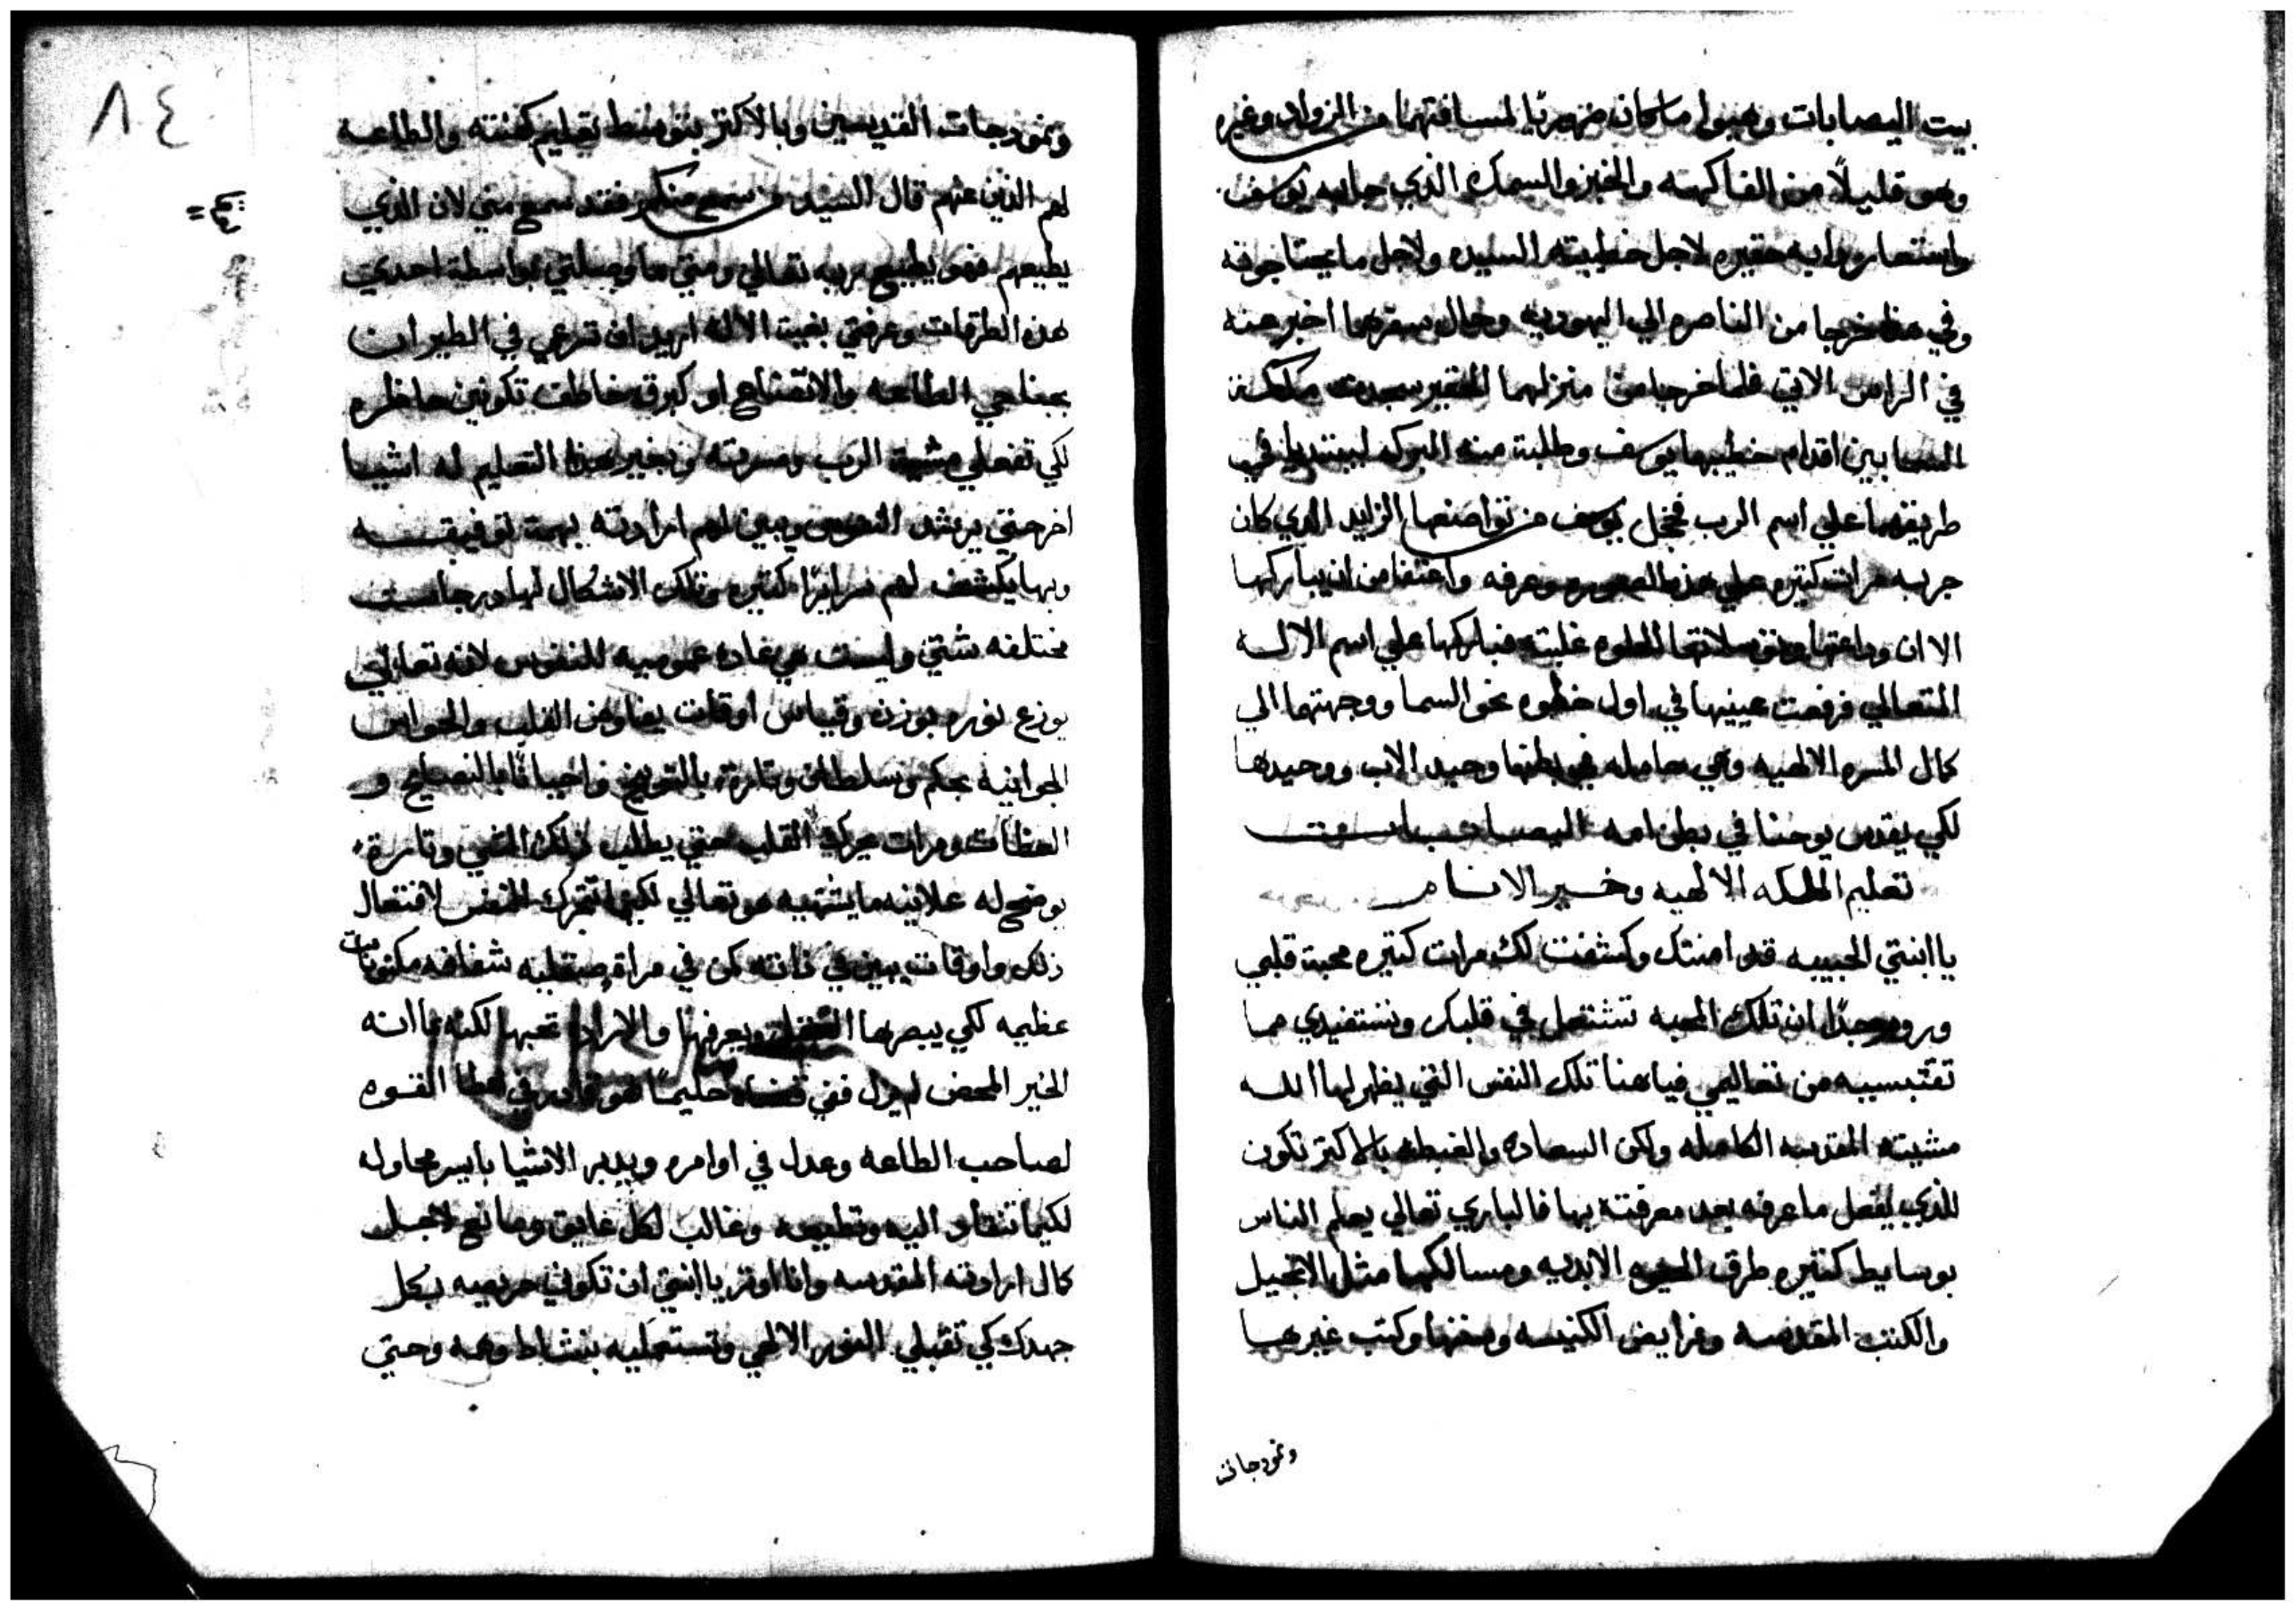 بيت اليصابات وهيوا ما كان ضهوريًا لمسافتهما من الزواده وغيره
وهو قليلًا من الفاكهه والخبز والسمك الذي جابه يوسف
واستعار دابه حقيره لاجل خطيبته السيده ولاجل ما يحتاجونه
وفي هذا خرجا من الناصره الي اليهوديه وحال سفرهما اخبر عنه
في الراس الاتي فلما خرجا من منزلهما الحقير سجدت ملكة
السما بين اقدام خطيبها يوسف وطلبت منه البركه ليبتديا في
طريقهما علي اسم الرب فخجل يوسف من تواضعها الزايد الذي كان
جربه مرات كتيره علي هذه الصوره وعرفه واعتفا من ان يباركها
الا ان وداعتها وتوسلاتها الحلوه غلبته فباركها علي اسم الاله
المتعالي فرفعت عينيها في اول خطوه نحو السما ووجهتها الي
كمال المسره الالهيه وهي حامله في بطنها وحيد الاب ووحيدها
لكي يقدس يوحنا في بطن امه اليصابات
تعليم الملكه الالهيه وخير الانام
يا ابنتي الحبيبه قد امنتك وكشفت لك مرات كتيره محبة قلبي
وبرودي جدًا ان تلك المحبه تشتعل في قلبك وتستفيدي مما
تقتبسيه من تعاليمي فيا هنا تلك النفس التي يظهر لها الله
مشيته المقدسه الكامله ولكن السعاده والغبطه بالاكتر تكون
للذي يفعل ما عرفه بعد معرفته بها فالباري تعالي يعلم الناس
بوسايط كتيره طرق الحيوه الابديه ومسالكها مثل الانجيل
والكتب المقدسه وفرايض الكنيسه وسننها وكتب غيرها
ونمودجات
٨٤
ونمودجات القديسين وبالاكتر بتوسط تعليم كهنته والطاعه
لهم الذين عنهم قال السيد من سمع منكم فقد سمع مني لان الذي
يطيعهم فهو يطيع ربه تعالي ومتي ما وصلتي بواسطة احدي
هذه الطرقات وعرفتي بغية الاله اريد ان تسرعي في الطيران
بجناحي الطاعه والاتضاع او كبرق خاطف تكونين حاظره
لكي تفعلي مشية الرب ومسرته وبغير هذا التعليم له اشيا
اخر حتي يرشد النفوس ويبين لهم ارادته بهمة توفيقه
وبها يكشف لهم سرايرًا كتيره وتلك الاشكال لها درجات
مختلفه شتي وليست هي عاده عموميه للنفوس لانه تعالي
يوزع نوره بوزن وقياس اوقات يفاوض القلب والحواس
الجوانيه بحكم وسلطان وتارة بالتوبيخ واحيانًا بالنصايح و
العظات ومرات يحرك القلب حتي يطلب ذلك الشي وتارة
يوضح له علانيه ما يشتهيه هو تعالي لكيما تتحرك النفس لافتعال
ذلك واوقات يبين في ذاته كمن في مراة صقليه شفافه مكنونات
عظيمه لكي يبصرها العقل ويعرفها والاراده تحبها لكنه بما انه
الخير المحض لم يزل ففي قضاه حليمًا هو قادر في عطا القوه
لصاحب الطاعه وعدل في اوامره ويدبر الاشيا بايسر محاوله
لكيما تنقاد اليه وتطيعه وغالب لكل عايق ومانع لاجل
كمال ارادته المقدسه وانا اوتر يا ابنتي ان تكوني حريصه بكل
جهدك كي تقبلي النور الالهي وتستعمليه بنشاط وهمه وحتي